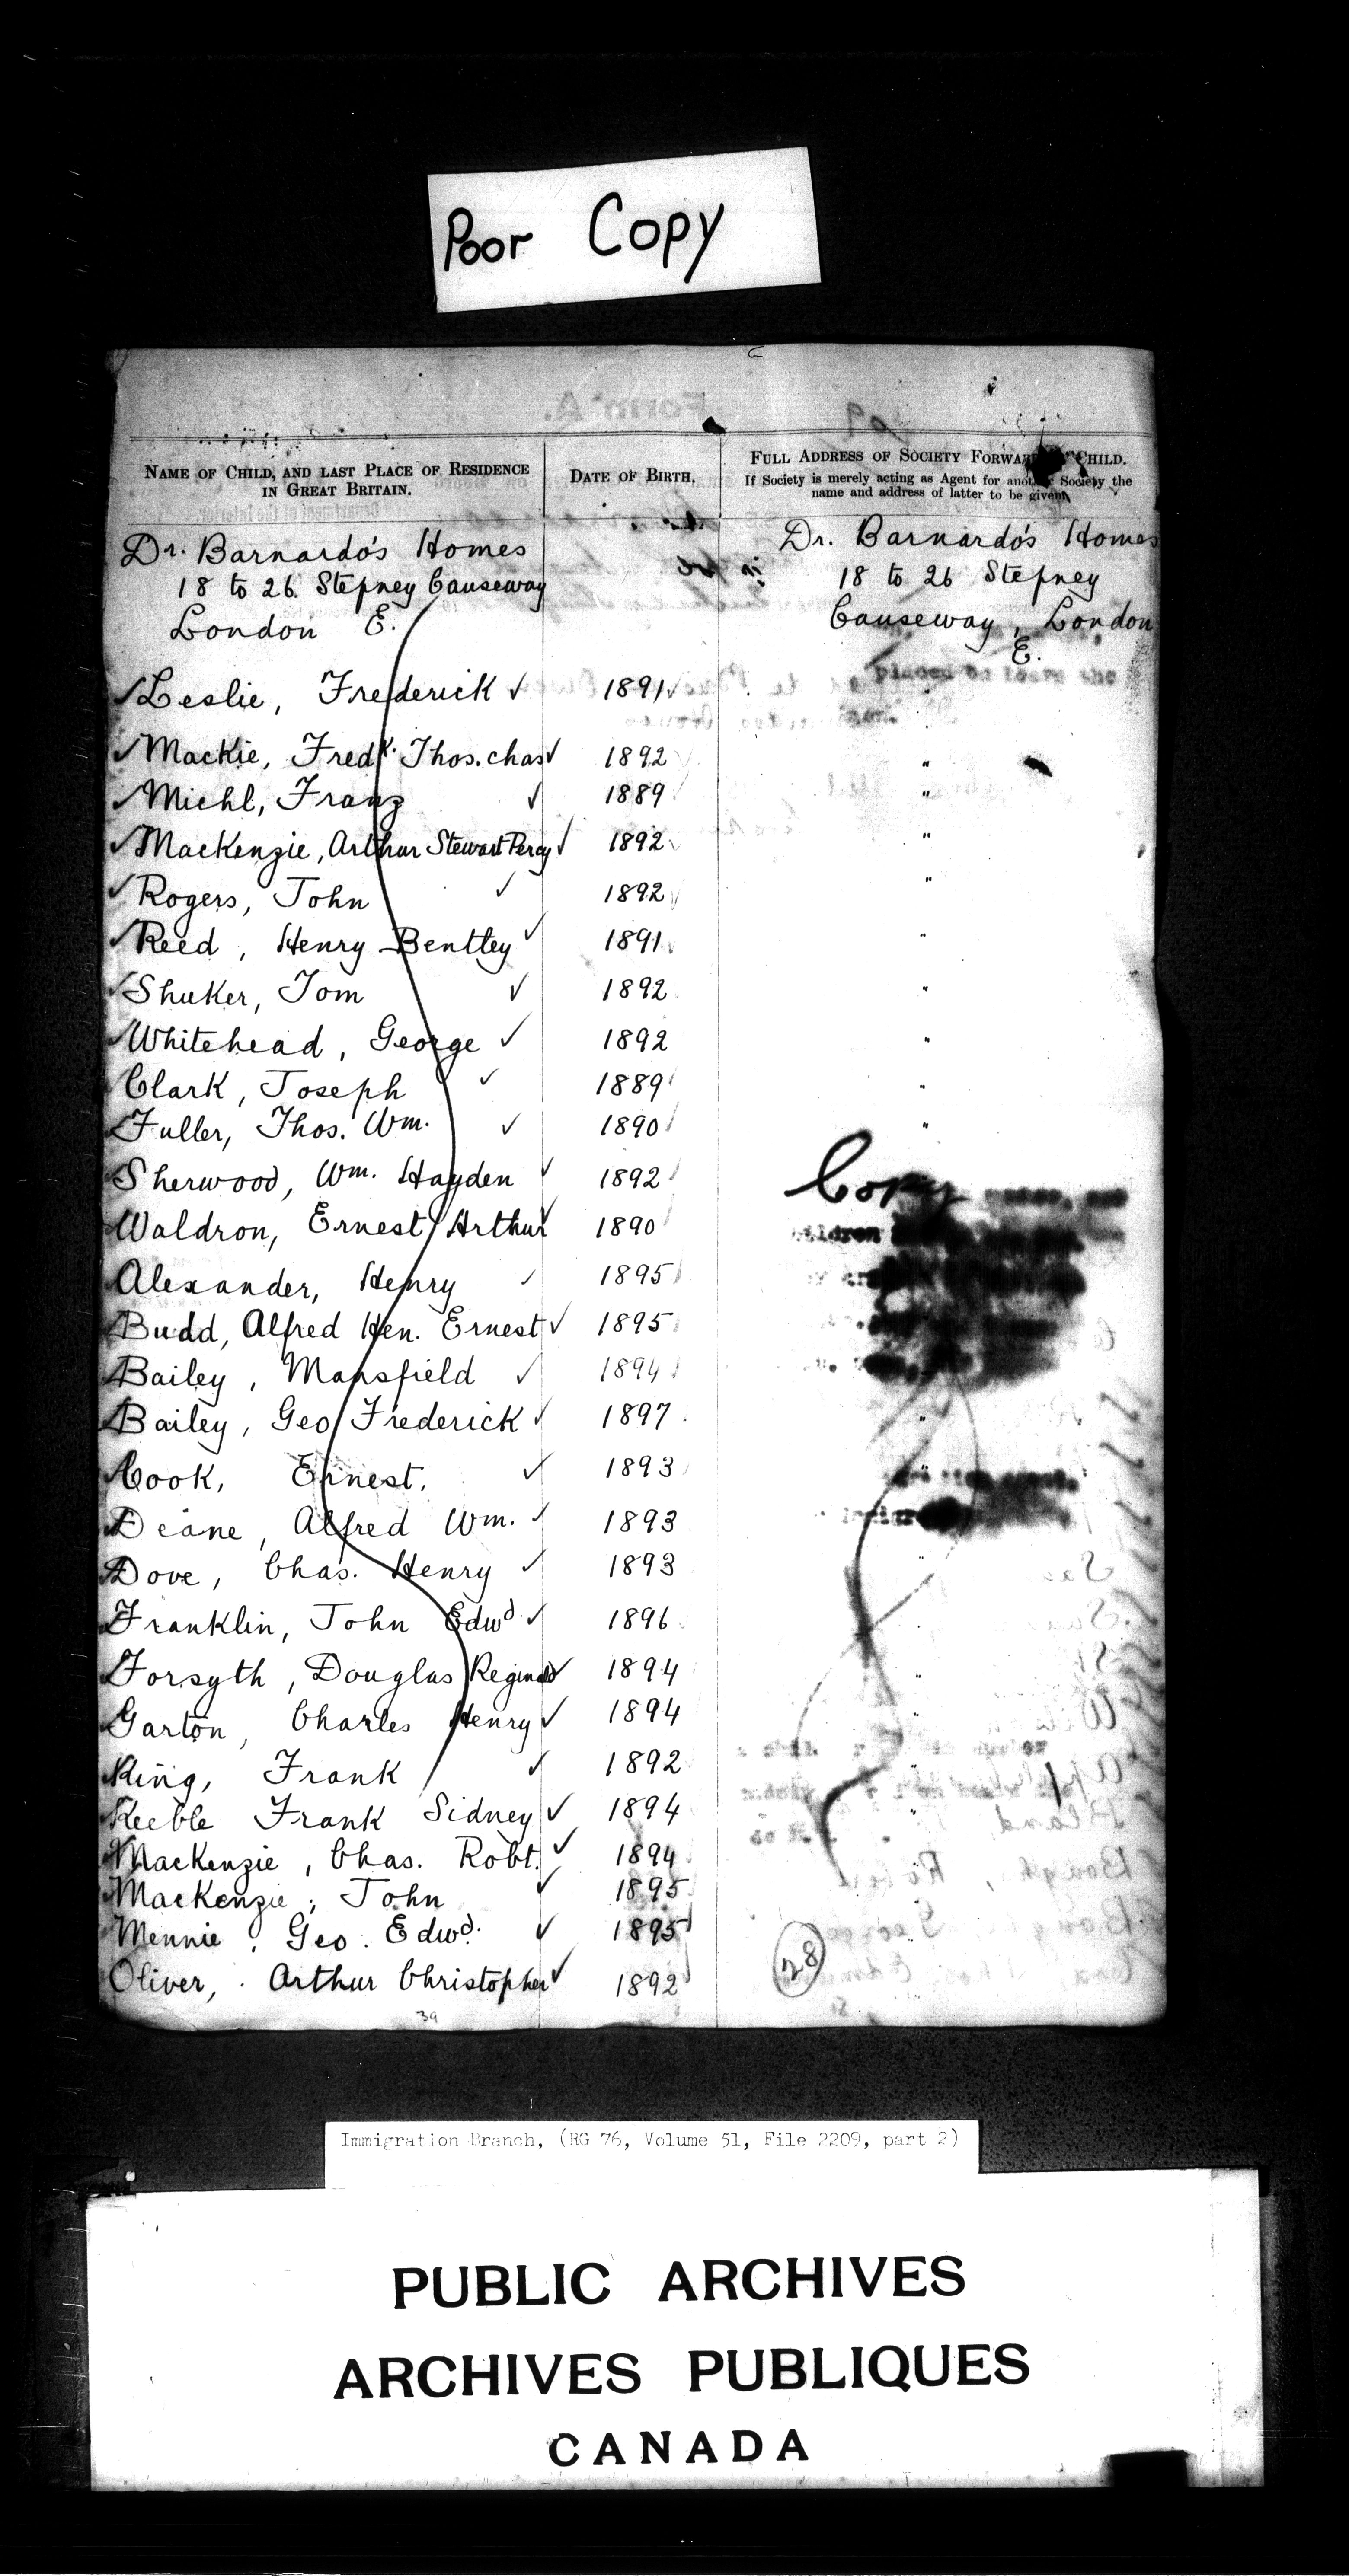 Poor Copy
NAME OF CHILD, AND LAST PLACE OF RESIDENCE IN GREAT BRITAIN.
DATE OF BIRTH.
FULL ADDRESS OF SOCIETY FORWARDING CHILD.
If Society is merely acting as Agent for another Society the
name and address of latter to be given.
Dr. Barnardo's Homes
18 to 26. Stepney Causeway
London E.
Dr. Barnardo's Homes
18 to 26 Stepney
Causeway, London
E.
Leslie, Frederick 1891
Mackie, Fredk. Thos. chas 1892 "
Michl, Franz 1889 "
MacKenzie, Arthur Stewart Percy 1892 "
Rogers, John 1892 "
Reed, Henry Bentley 1891 "
Shuker, Tom 1892 "
Whitehead, George 1892 "
Clark, Joseph 1889 "
Fuller, Thos. Wm. 1890 "
Sherwood, Wm. Hayden 1892
Copy
Waldron, Ernest Arthur 1890
Alexander, Henry 1895
Budd, Alfred Hen. Ernest 1895
Bailey, Mansfield 1894
Bailey, Geo Frederick 1897 "
Cook, Ernest. 1893 "
Deane, Alfred Wm. 1893
Dove, Chas. Henry 1893 "
Franklin, John Edwd. 1896
Forsyth, Douglas Reginald 1894 "
Garton, Charles Henry 1894 "
King, Frank 1892
Keeble Frank Sidney 1894 "
MacKenzie, Chas. Robt. 1894
MacKenzie, John 1895
Mennie, Geo. Edwd. 1895
Oliver, Arthur Christopher 1892
28
39
Immigration Branch, (RG 76, Volume 51, File 2209, part 2)
PUBLIC ARCHIVES
ARCHIVES PUBLIQUES
CANADA